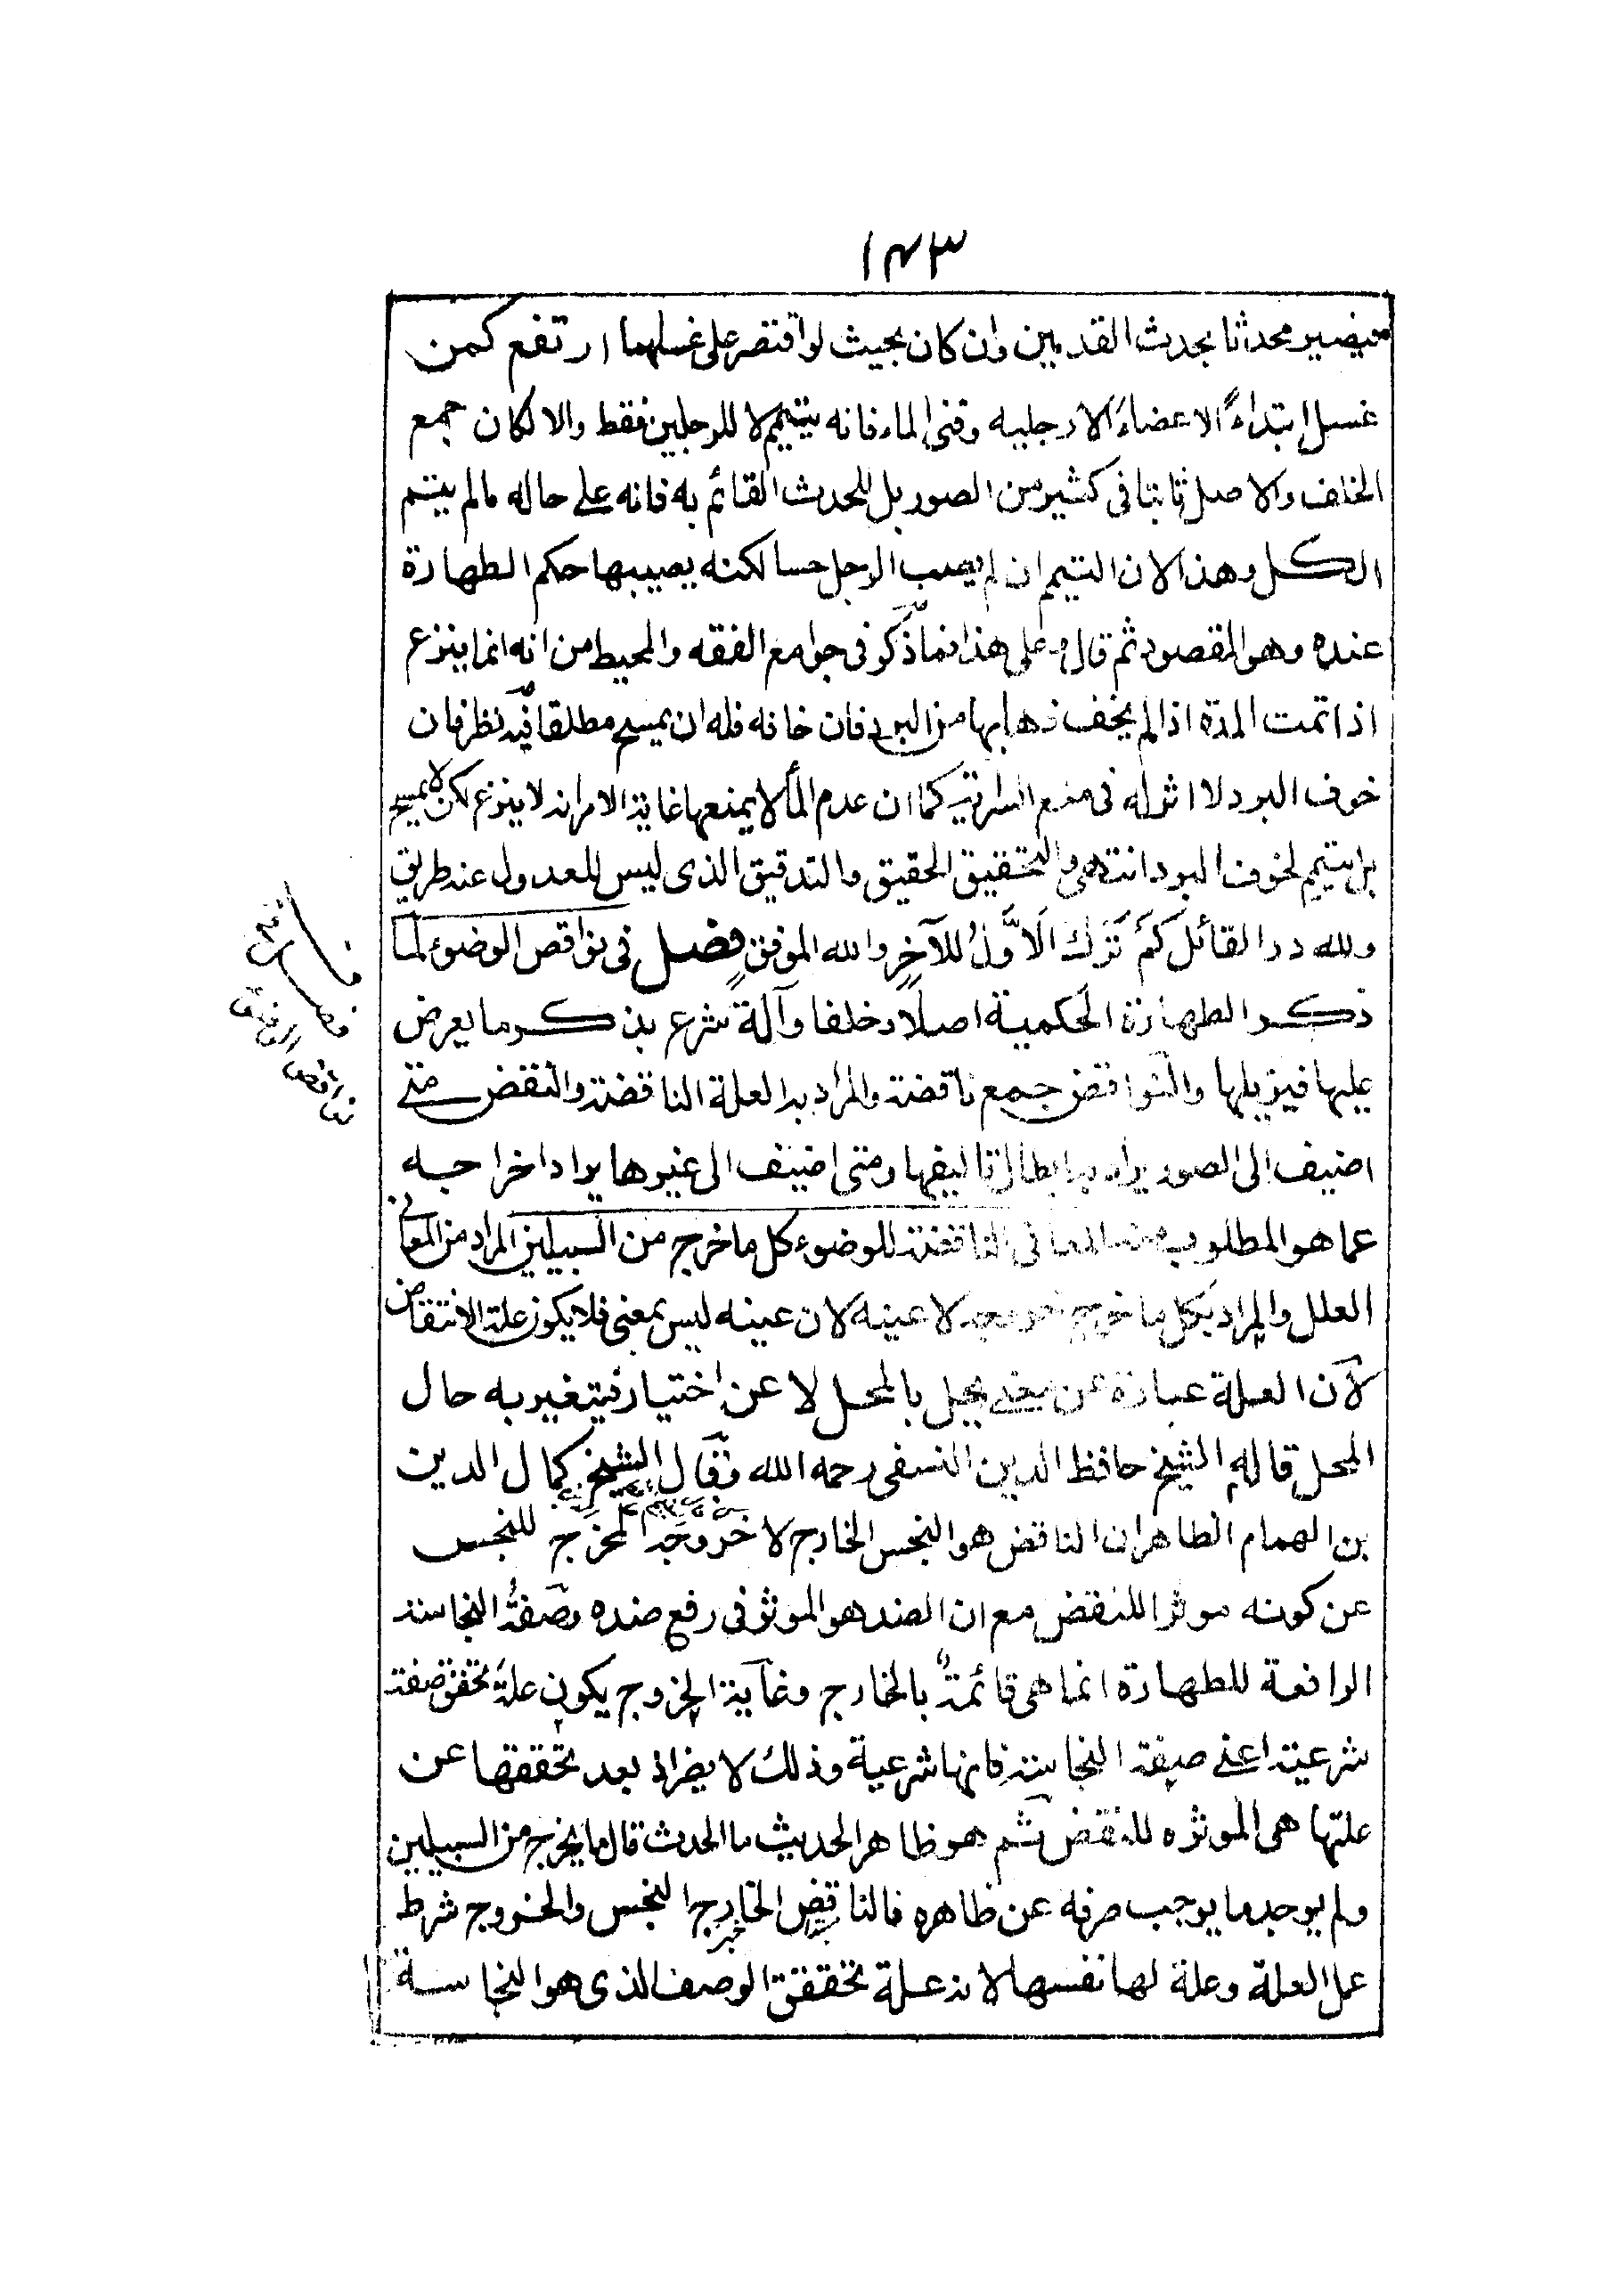 ١٤٣
فيصير محدثا بحدث القدمين وان كان بحيث لو اقتصر على غسلهما ارتفع كمن
غسل ابتداءً الاعضاءَ الا رجليه وفنى الماء فانه يتيمم لا للرجلين فقط والا لكان جمع
الخلف والاصل ثابتا فى كثير من الصور بل للحدث القائم به فانه على حاله مالم يتم
الكل وهذا لان التيمم ان لم يصب الرجل حسا لكنه يصيبها حكم الطهارة
عنده وهو المقصود ثم قال وعلى هذا فما ذكر فى جوامع الفقه والمحيط من انه انما ينزع
اذا تمت المدة اذا لم يخف ذهابها من البرد فان خافه فله ان يمسح مطلقا فيه نظر فان
خوف البرد لا اثر له فى منع السراية كما ان عدم الماء لا يمنعها غاية الامر انه لا ينزع لكن لا يمسح
بل يتيمم لخوف البرد انتهى والتحقيق الحقيق والتدقيق الذى ليس للعدول عنه طريق
ولله در القائل كَمْ تَرَكَ الَاوَّلُ للآخِرِ والله الموفق فصل فى نواقض الوضوء لما
ذكر الطهارة الحكمية اصلا وخلفا وآلة شرع بذكر ما يعرض
عليها فيزيلها والنواقض جمع ناقضة والمراد به العلة الناقضة والنقض متى
اضيف الى الصور يراد به ابطال تاليفها ومتى اضيف الى غيرها يراد اخراجه
عما هو المطلوب منه المعانى الناقضة للوضوء كل ما خرج من السبيلين المراد من المعانى
العلل والمراد بكل ما خرج خروجه لا عينه لان عينه ليس بمعنى فلا يكون علة الانتقاض
لان العلة عبارة عن معنى يحل بالمحل لا عن اختيار فيتغير به حال
المحل قاله الشيخ حافظ الدين النسفى رحمه الله وقال الشيخ كمال الدين
بن الهمام الظاهر ان الناقض هو النجس الخارج لا خروجه المخرج للنجس
عن كونه موثرا للنقض مع ان الضد هو الموثر فى رفع ضده وصفةُ النجاسة
الرافعة للطهارة انما هى قائمةٌ بالخارج وغاية الخروج يكون علة تحقق صفة
شرعية اعنى صفة النجاسة فانها شرعية وذلك لا يضر اذ بعد تحققها عن
علتها هى الموثره للنقض ثم هو ظاهر الحديث ما الحدث قال ما يخرج من السبيلين
ولم يوجد ما يوجب صرفه عن ظاهره فالناقض الخارج النجس والخروج شرط
عمل العلة وعلة لها نفسها لانه علة تحقق الوصف الذى هو النجاسة
فصل فى
نواقض الوضوء